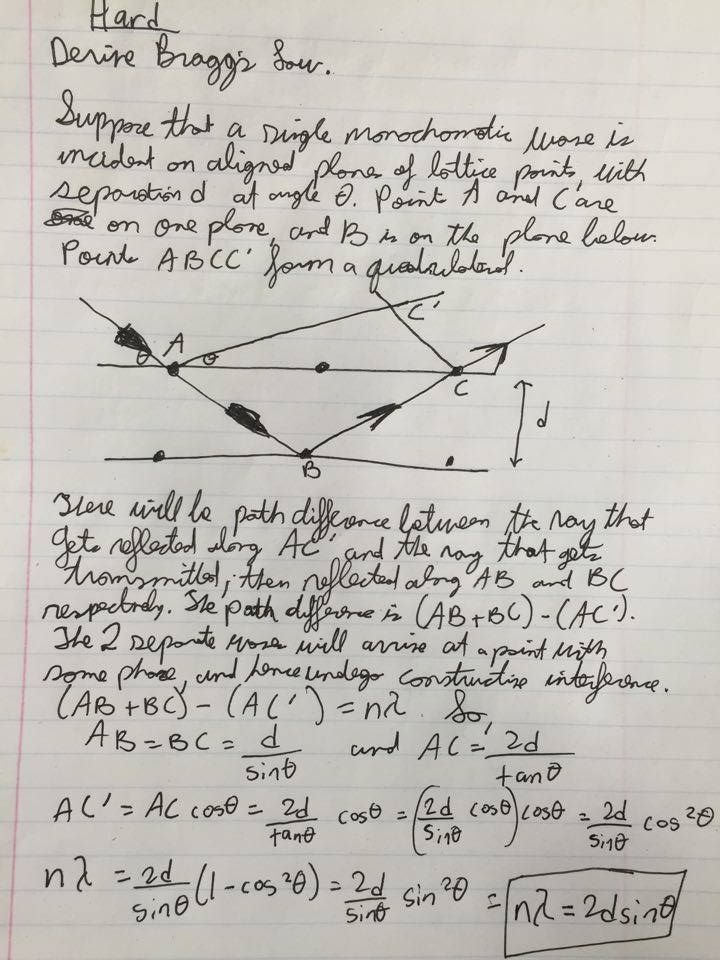 Hard
Derive Bragg's Law.
Suppose that a single monochomatic wave is
incident on aligned planes of lattice points, with
separation d at angle θ. Point A and C are
on one plane, and B is on the plane below.
Points ABCC' form a quadrilateral.
C'
θ A θ
C
d
B
There will be path difference between the ray that
gets reflected along AC' and the ray that gets
transmitted, then reflected along AB and BC
respectively. The path difference is (AB+BC)-(AC').
The 2 separate waves will arrive at a point with
same phase, and hence undego constructive interference.
(AB+BC)-(AC') = nλ. So,
AB = BC = d/sinθ and AC = 2d/tanθ
AC' = AC cosθ = 2d/tanθ cosθ = (2d/sinθ cosθ)cosθ = 2d/sinθ cos²θ
nλ = 2d/sinθ (1-cos²θ) = 2d/sinθ sin²θ = nλ = 2dsinθ